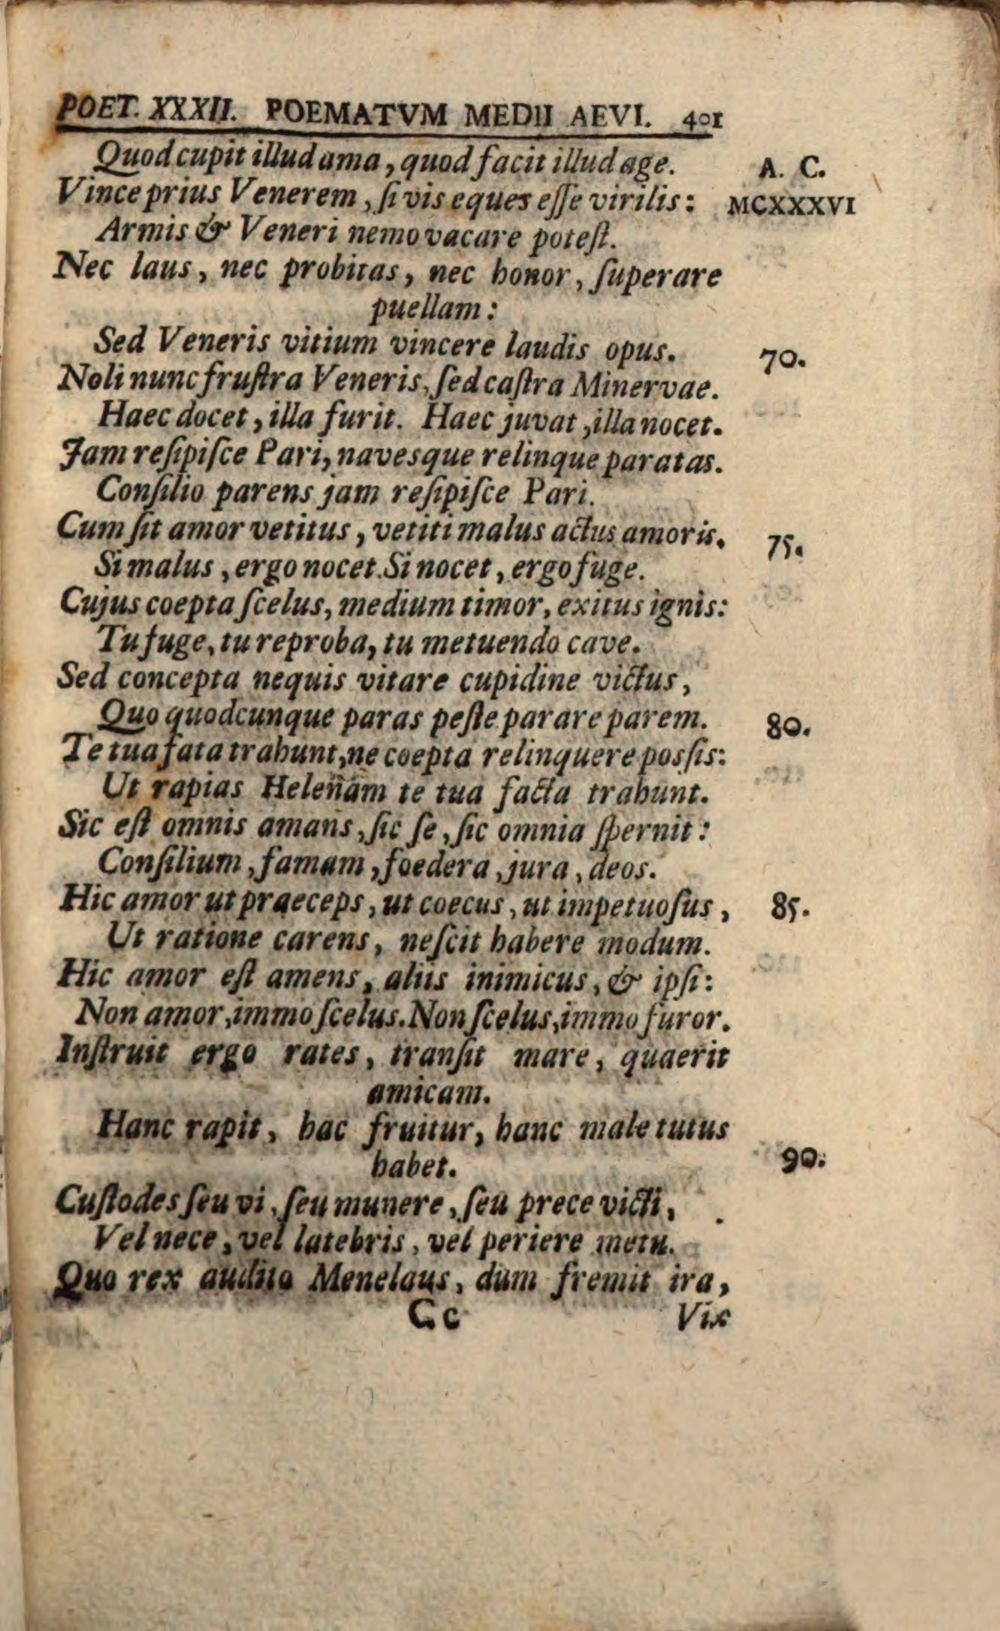 POET. XXXII. POEMATVM MEDII AEVI. 401
Quod cupit illud ama, quod facit illud age. A. C.
Vince prius Venerem, ſi vis eques eſſe virilis: MCXXXVI
Armis & Veneri nemo vacare poteſt.
Nec laus, nec probitas, nec honor, ſuperare
puellam:
Sed Veneris vitium vincere laudis opus. 70.
Noli nunc fruſtra Veneris, ſed caſtra Minervae.
Haec docet, illa furit. Haec juvat, illa nocet.
Jam reſipiſce Pari, navesque relinque paratas.
Conſilio parens jam reſipiſce Pari.
Cum ſit amor vetitus, vetiti malus actus amoris. 75.
Si malus, ergo nocet. Si nocet, ergo fuge.
Cujus coepta ſcelus, medium timor, exitus ignis:
Tu fuge, tu reproba, tu metuendo cave.
Sed concepta nequis vitare cupidine victus,
Quo quodcunque paras peſte parare parem. 80.
Te tua fata trahunt, ne coepta relinquere posſis:
Ut rapias Helenam te tua facta trahunt.
Sic eſt omnis amans, ſic ſe, ſic omnia ſpernit:
Conſilium, famam, foedera, jura, deos.
Hic amor ut praeceps, ut coecus, ut impetuoſus, 85.
Ut ratione carens, neſcit habere modum.
Hic amor eſt amens, aliis inimicus, & ipſi:
Non amor, immo ſcelus. Non ſcelus, immo furor.
Inſtruit ergo rates, tranſit mare, quaerit
amicam.
Hanc rapit, hac fruitur, hanc male tutus
habet. 90.
Cuſtodes ſeu vi, ſeu munere, ſeu prece victi,
Vel nece, vel latebris, vel periere metu.
Quo rex audito Menelaus, dum fremit ira,
Cc Vix